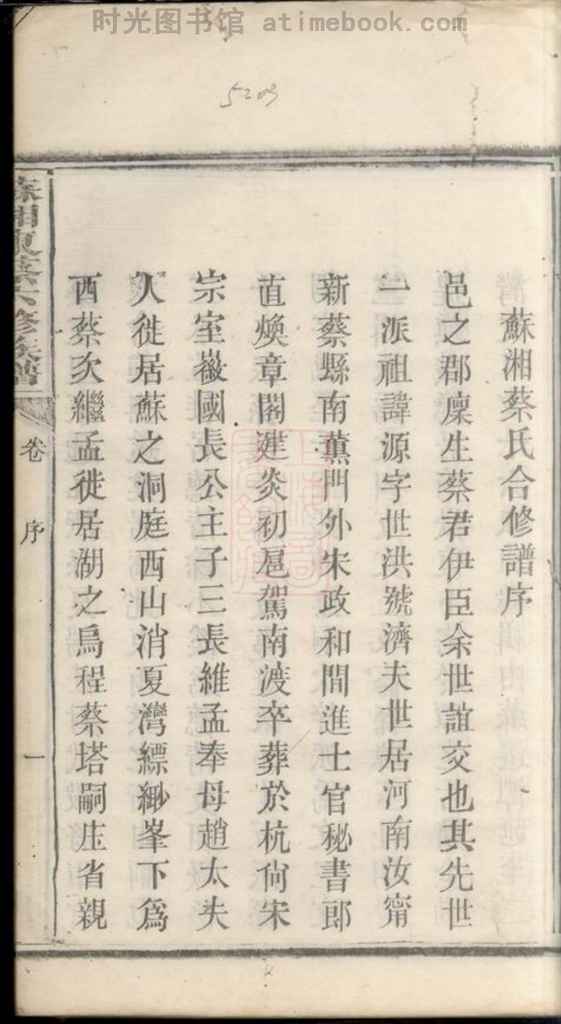 时光图书馆 atimebook.com
5209
蘇湘蔡氏合修譜序
邑之郡廩生蔡君伊臣余世誼交也其先世
一派祖諱源字世洪號濟夫世居河南汝甯
新蔡縣南薰門外朱政和間進士官秘書郎
直煥章閣建炎初扈駕南渡卒葬於杭尙宋
宗室徽國長公主子三長維孟奉母趙太夫
人徙居蘇之洞庭西山消夏灣縹緲峯下爲
西蔡次繼孟徙居湖之烏程蔡塔嗣庄省親
湘東蔡六修族譜
卷
序
一